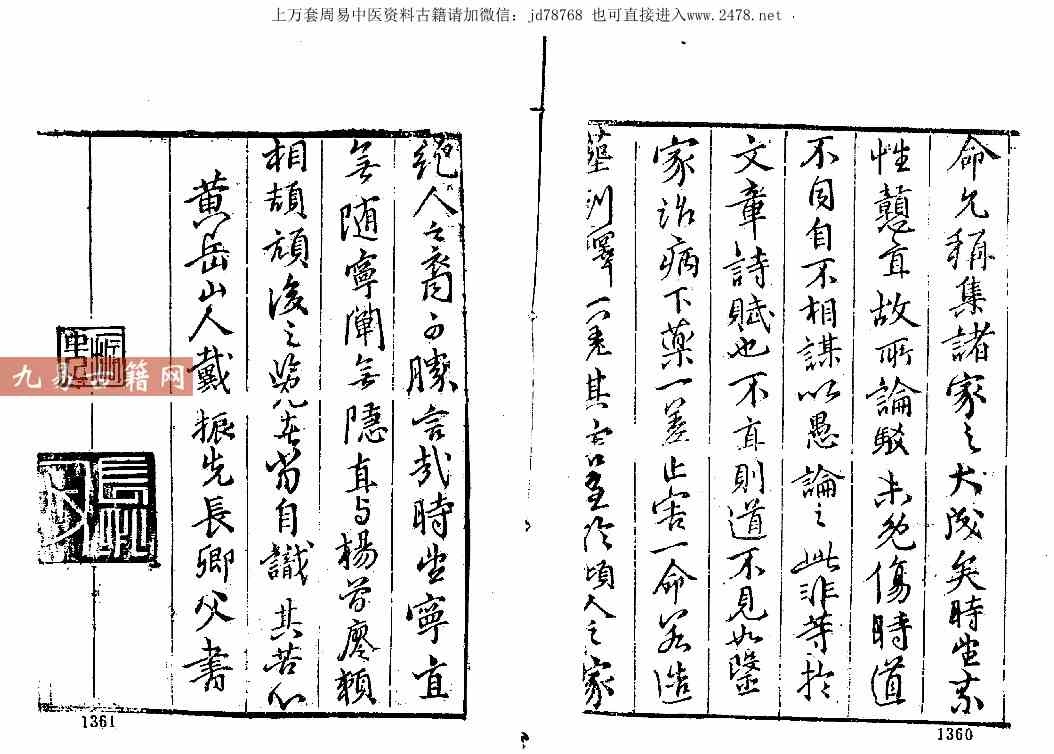 上万套周易中医资料古籍请加微信：jd78768 也可直接进入www.2478.net
命允稱集諸家之大成矣時坐素
性戇直故所論駁未免傷時道
不同自不相謀以愚論之此非等於
文章詩賦也不直則道不見如醫
家治病下藥一差止害一命若造
葬  一差其害至於傾人之家
1360
絕人之裔可勝言哉時坐寧直
無隨寧闡無隱直与楊曾廖賴
相頡頏後之覽者當自識其苦心
黃岳山人戴振先長卿父書
九易古籍网
1361